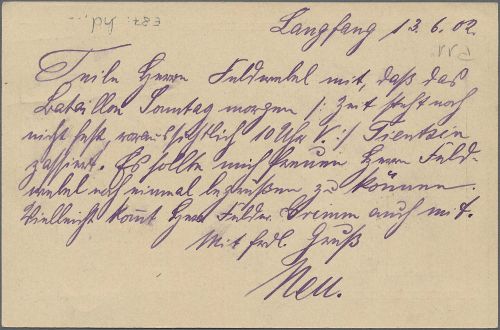 Langfang 13.6.02.
Teile Herrn Feldwebel mit, daß das
Bataillon Sonntag morgen /: Zeit steht noch
nicht fest, voraussichtlich 10 Uhr V. :/ Tientsin
passiert. Es sollte mich freuen Herrn Feld-
webel noch einmal begrüßen zu können.
Vielleicht kommt Herr Feldw. Grimm auch mit.
Mit frdl. Gruß
Neu.